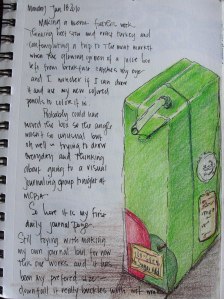 Monday Jan 18 2010
Making a menu for this week.
Thinking beef stew and roast turkey and
contemplating a trip to the meat market
when the glowing green of a juice box
left from breakfast catches my eye
and I wonder if I can draw
it and use my new colored
pencils to color it in.
Probably could have
moved the box so the angle
wasn't so unusual but
oh well - trying to draw
everyday and thinking
about going to a visual
journaling group tonight at
So here it is my first
daily journal page.
Still trying with making
my own journal but for now
this one works and it has
been my preferred size
downfall it really buckles with wet